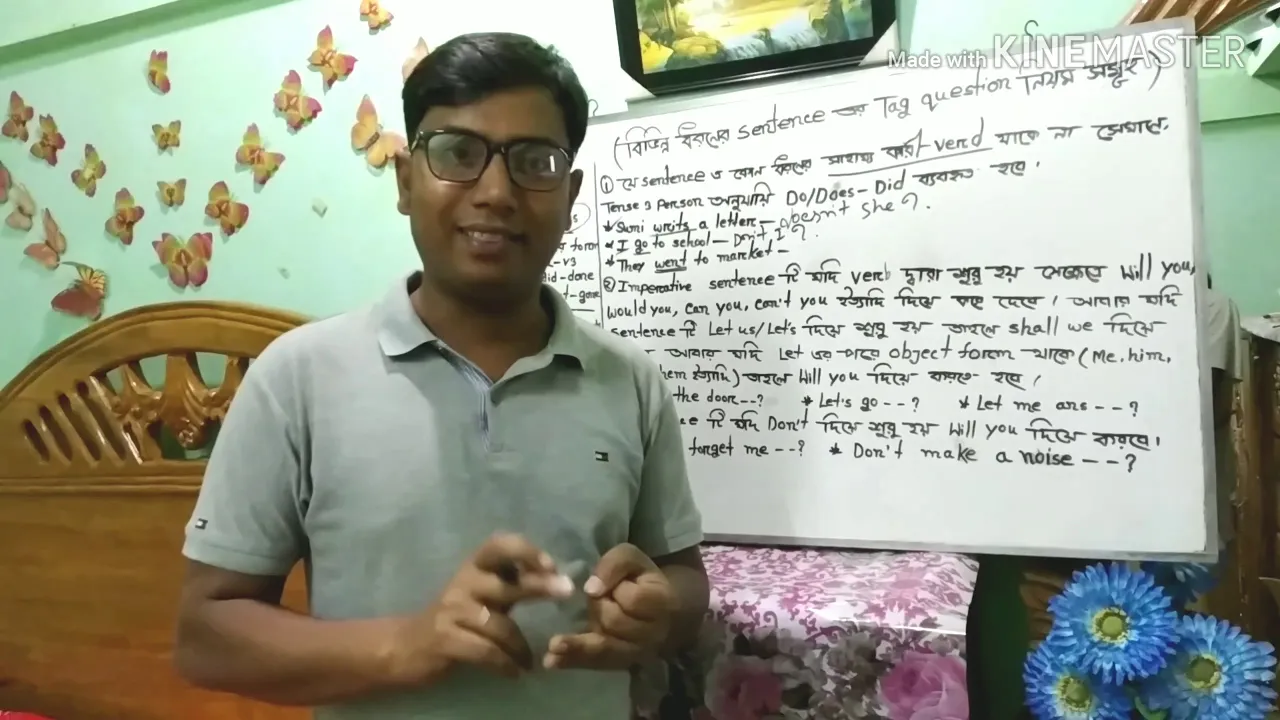 Made with KINEMASTER
(বিভিন্ন ধরনের sentence এর Tag question নিয়ম সমূহ)
① যে sentence এ কোন ধরনের সাহায্য কারী verb থাকে না সেখানে
Tense ও Person অনুযায়ি Do/Does - Did ব্যবহৃত হবে।
* Sumi writs a letter - Doesn't she?
* I go to school - Don't I?
* They went to market -
② Imperative sentence টি যদি verb দ্বারা শুরু হয় সেক্ষেত্রে Will you,
Would you, can you, can't you ইত্যাদি দিয়ে করে দেবে। আবার যদি
sentence টি Let us/Let's দিয়ে শুরু হয় তাহলে shall we দিয়ে
আবার যদি Let এর পরে object form থাকে (Me, him,
hem ইত্যাদি) তাহলে Will you দিয়ে করতে হবে।
the door --? * Let's go --? * Let me ans --?
ce টি যদি Don't দিয়ে শুরু হয় Will you দিয়ে করবে।
forget me --? * Don't make a noise --?
s
form
-v3
did-done
t-gone